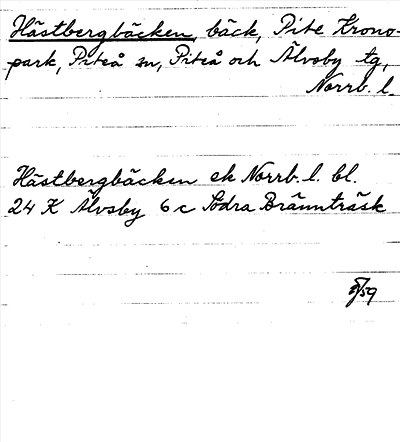 Hästbergbäcken, bäck, Pite Krono-
park, Piteå sn, Piteå och Älvsby tg,
Norrb. l.
Hästbergbäcken ek Norrb. l. bl.
24 K Älvsby 6 c Södra Brännträsk